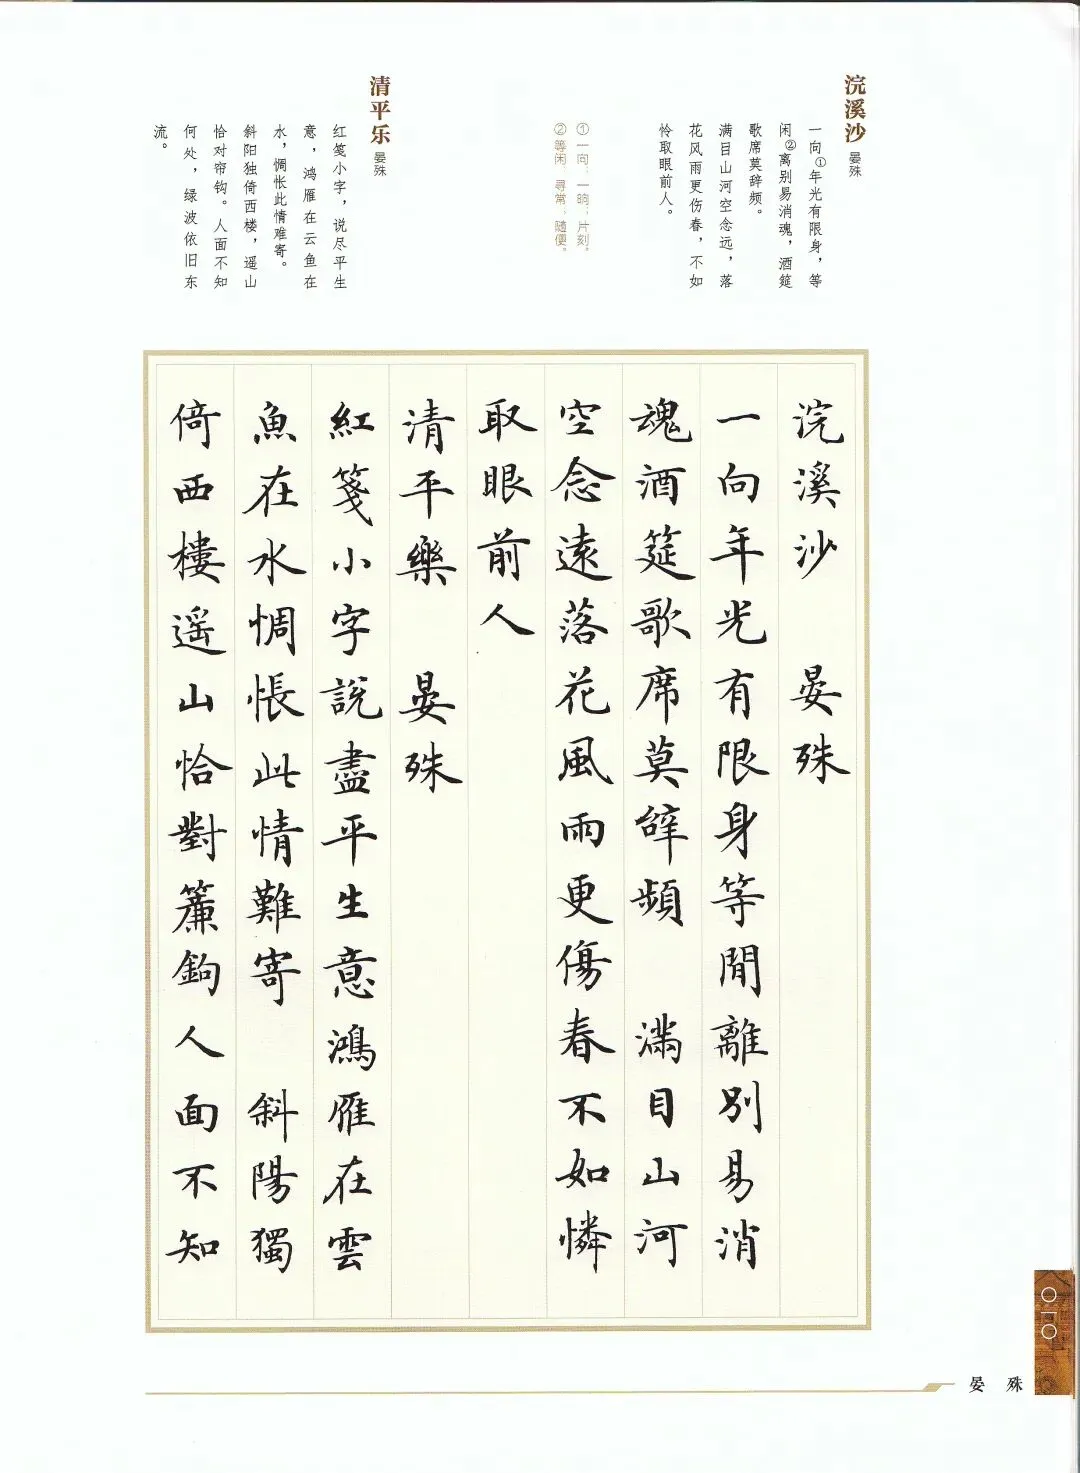 浣溪沙 晏殊
一向①年光有限身，等
闲②离别易消魂，酒筵
歌席莫辞频。
满目山河空念远，落
花风雨更伤春，不如
怜取眼前人。
①一向：一晌；片刻。
②等闲：寻常；随便。
清平乐 晏殊
红笺小字，说尽平生
意，鸿雁在云鱼在
水，惆怅此情难寄。
斜阳独倚西楼，遥山
恰对帘钩。人面不知
何处，绿波依旧东
流。
浣溪沙 晏殊
一向年光有限身等閒離別易消
魂酒筵歌席莫辤頻 滿目山河
空念遠落花風雨更傷春不如憐
取眼前人
清平樂 晏殊
紅箋小字說盡平生意鴻雁在雲
魚在水惆悵此情難寄 斜陽獨
倚西樓遥山恰對簾鉤人面不知
〇一〇
晏 殊